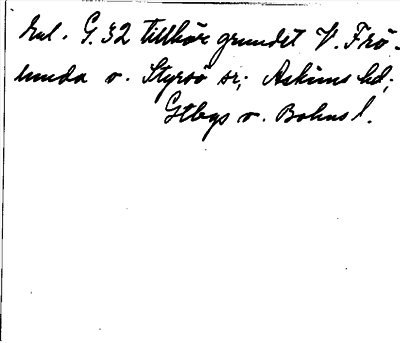 Enl. G. 32 tillhör grundet V. Frö-
lunda o. Styrsö sr; Askims hd;
Gtbgs o. Bohusl.